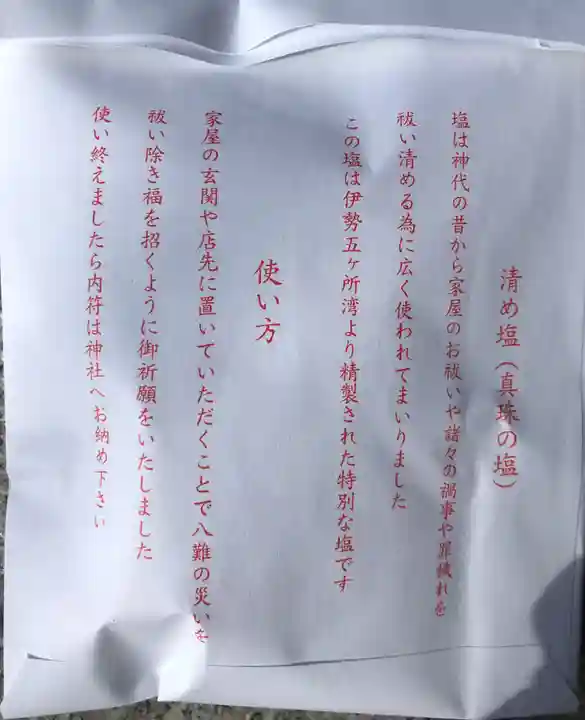 清め塩（真珠の塩）
塩は神代の昔から家屋のお祓いや諸々の禍事や罪穢れを
祓い清める為に広く使われてまいりました
この塩は伊勢五ヶ所湾より精製された特別な塩です
使い方
家屋の玄関や店先に置いていただくことで八難の災いを
祓い除き福を招くように御祈願をいたしました
使い終えましたら内符は神社へお納め下さい